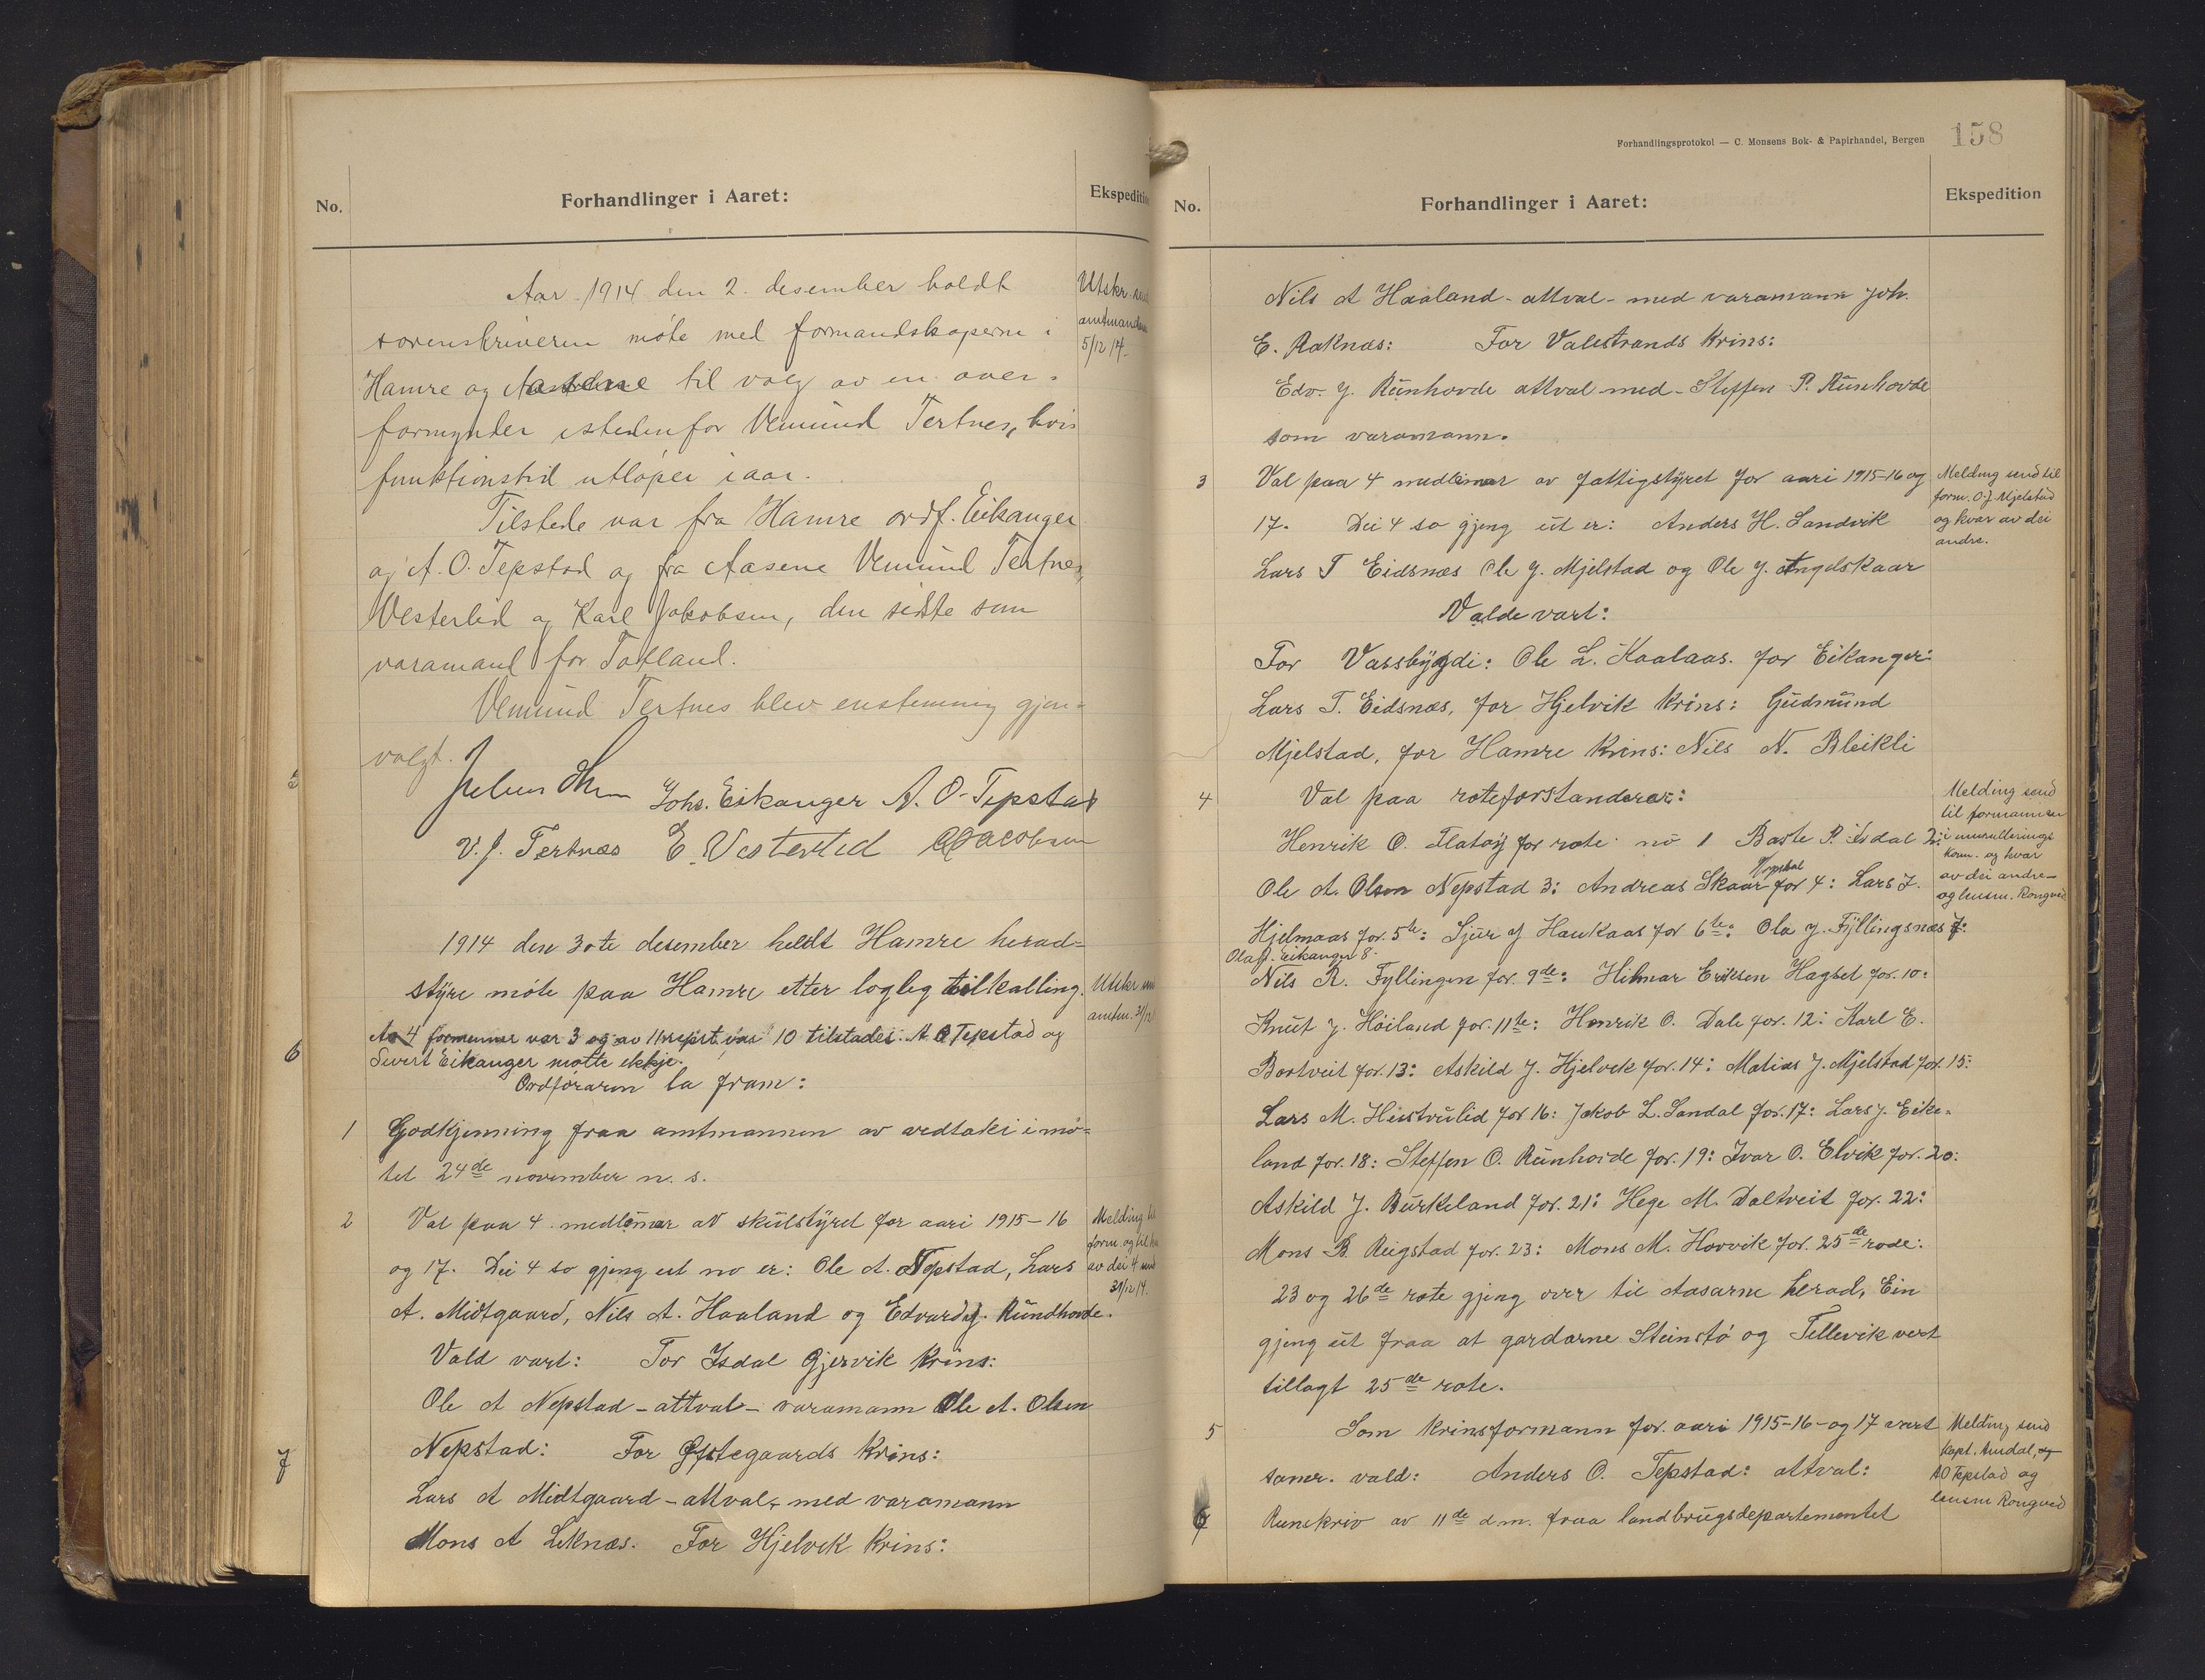 No.
Forhandlinger i Aaret:
Ekspeditio
Aar 1914 den 2. desember holdt
sorenskriveren møte med formandskaperne i
Hamre og Aasene til valg av en over-
formynder istedenfor Vemund Tertnes, hvis
funktionstid utløper i aar.
Tilstede var fra Hamre ordf. Eikanger
og A. O. Tepstad og fra Aasene Vemund Tertnes,
Westerlid og Karl Jakobsen, den sidste som
varamand for Totland.
Vemund Tertnes blev enstemmig gjen-
valgt.
Johs. Eikanger A. O. Tepstad
V. J. Tertnæs E. Vesterlid
Utskr. send
amtmanden
5/12 14.
5
1914 den 30te desember heldt Hamre herad-
styre møte paa Hamre etter logleg tilkalling.
Utskr.
amtm. 31/12
6
Av 4 formenner var 3 og av 11 reprt. var 10 tilstades. A O Tepstad og
Sivert Eikanger møtte ekkje.
Ordføraren la fram:
1 Godkjenning fraa amtmannen av vedtaki i mø-
tet 24de november n. s.
2 Val paa 4 medlemar av skulstyret for aari 1915-16
og 17. Dei 4 so gjeng ut no er: Ole A. Nepstad, Lars
A. Midtgaard, Nils A. Haaland og Edvard J. Rundhovde.
Melding
form. og til
av dei 4
31/12 14.
Vald vart: For Isdal Gjervik Krins:
Ole A Nepstad - attval - varamann Ole A. Olsen
7
Nepstad: For Øfstegaards Krins:
Lars A Midtgaard - attval - med varamann
Mons A Leknæs. For Hjelvik Krins:
Forhandlingsprotokol — C. Monsens Bok- & Papirhandel, Bergen
158
No.
Forhandlinger i Aaret:
Ekspedition
Nils A Haaland - attval - med varamann Joh.
E. Raknæs: For Valestrands Krins:
Edv. J. Runhovde attval med - Steffen P. Runhovde
som varamann.
3 Val paa 4 medlemar av fattigstyret for aari 1915-16 og
17. Dei 4 so gjeng ut er: Anders H. Sandvik
Lars T Eidsnæs Ole J. Mjelstad og Ole J. Angelskaar
Melding send til
form. O. J. Mjelstad
og kvar av dei
andre.
Valde vart:
For Vassbygdi: Ole L. Kaalaas. for Eikanger:
Lars T. Eidsnæs, for Hjelvik Krins: Gudmund
Mjelstad, for Hamre Krins: Nils N. Bleikli
4 Val paa roteforstandarar:
Henrik O. Flatøy for rote no 1 Baste P. Isdal 2:
Ole A. Olsen Nepstad 3: Andreas Skaar Nepstad for 4: Lars J.
Hjelmaas for 5te: Sjur J Haukaas for 6te: Ola J. Fyllingsnæs 7:
Ola J. Eikanger 8.
Nils R. Fyllingen for 9de: Hilmar Eriksen Hagset for 10:
Knut J. Høiland for 11te: Henrik O. Dale for 12: Karl E.
Bortveit for 13: Askild J. Hjelvik for 14: Matias J. Mjelstad for 15:
Lars M. Heistrulid for 16: Jakob L. Sandal for 17: Lars J. Eike-
land for 18: Steffen O. Runhovde for 19: Ivar O. Elvik for 20:
Askild J. Burkeland for 21: Hege M. Daltveit for 22:
Mons B. Reigstad for 23: Mons M. Horvik for 25de rode:
23 og 26de rote gjeng over til Aasarne herad, Ein
gjeng ut fraa at gardarne Steinstø og Tellevik vert
tillagt 25de rote.
Melding send
til formannen
i innrullerings
kom. og kvar
av dei andre -
og lensm. Rongved
5 Som krinsformann for aari 1915-16 og 17 vart
samr. vald: Anders O. Tepstad: attval:
Melding send
kapt. Amdal, og
AO Tepstad og
lensm Rongved
6 Runskriv av 11de d.m. fraa landbrugsdepartementet